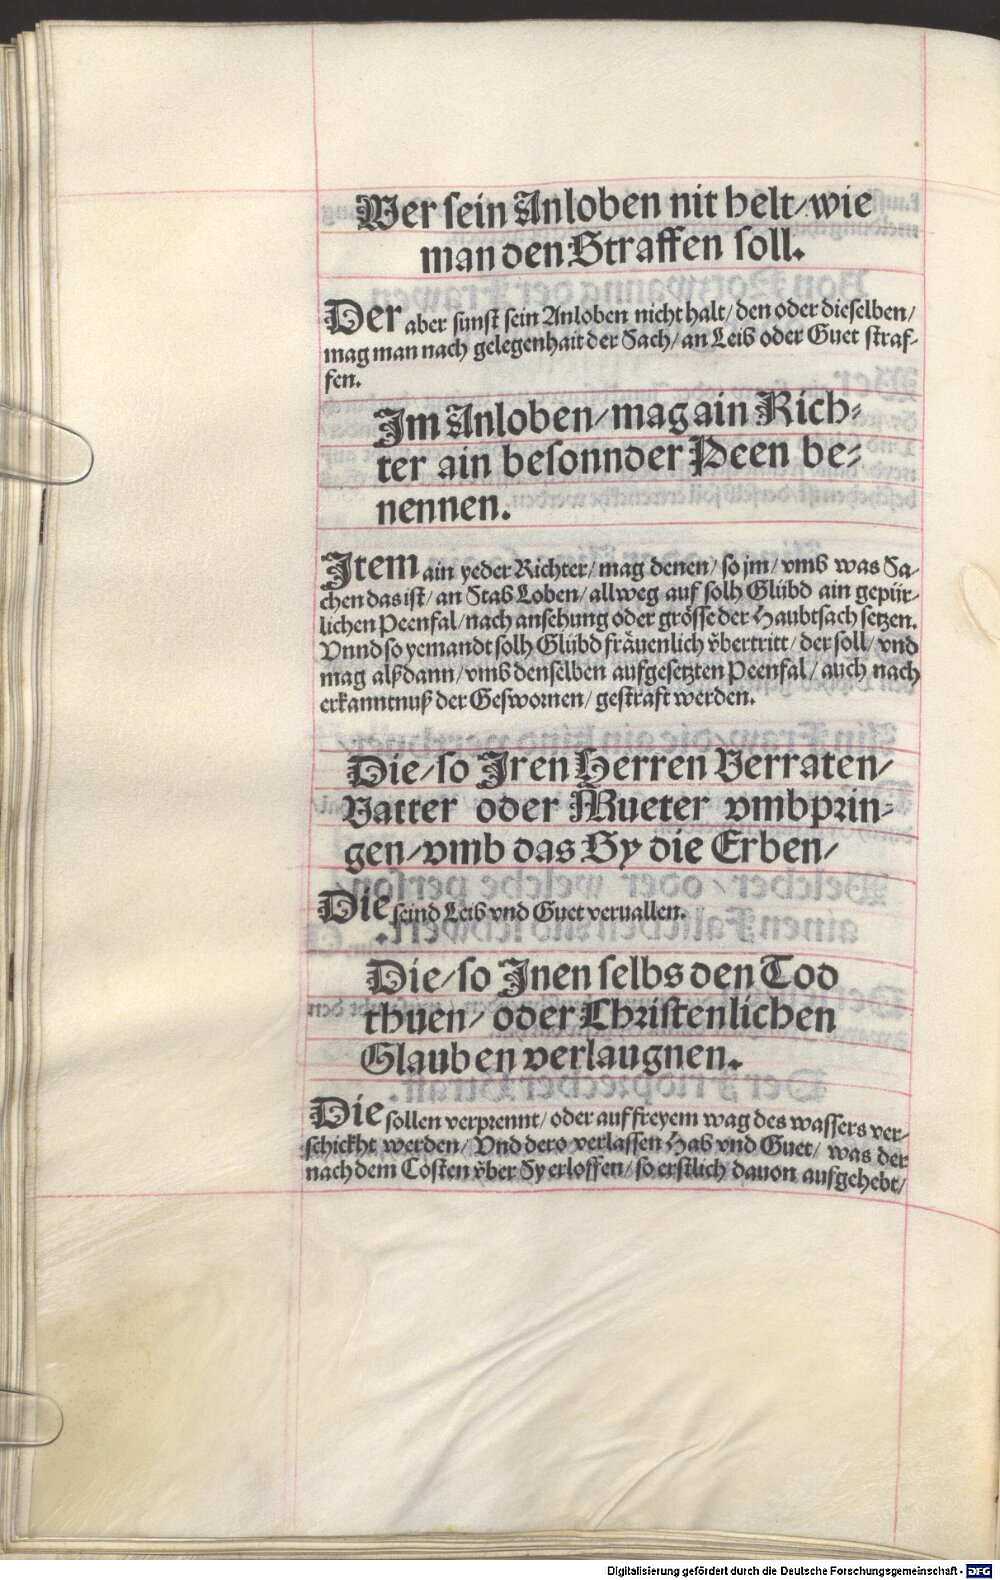 Wer sein Anloben nit helt/ wie
man den Straffen soll.
Der aber sunst sein Anloben nicht halt/ den oder dieselben/
mag man nach gelegenhait der Sach/ an Leib oder Guet straf-
fen.
Im Anloben/ mag ain Rich-
ter ain besonnder Peen be-
nennen.
Item ain yeder Richter/ mag denen/ so jm/ vmb was Sa-
chen das ist/ an Stab Loben/ allweg auf solh Glübd ain gepür-
lichen Peenfal/ nach ansehung oder grösse der Haubtsach setzen.
Vnnd so yemandt solh Glübd fräuenlich v̈bertritt/ der soll/ vnd
mag alßdann/ vmb denselben aufgesetzten Peenfal/ auch nach
erkanntnuß der Geswornen/ gestraft werden.
Die/ so Iren Herren Verraten/
Vatter oder Mueter vmbprin-
gen/ vmb das Sy die Erben/
Die seind Leib vnd Guet veruallen.
Die/ so Inen selbs den Tod
thuen/ oder Christenlichen
Glauben verlaugnen.
Die sollen verprennt/ oder auf freyem wag des wassers ver-
schickht werden/ Vnd dero verlassen Hab vnd Guet/ was der
nach dem Costen v̈ber Sy erloffen/ so erstlich dauon aufgehebt/
Digitalisierung gefördert durch die Deutsche Forschungsgemeinschaft - DFG